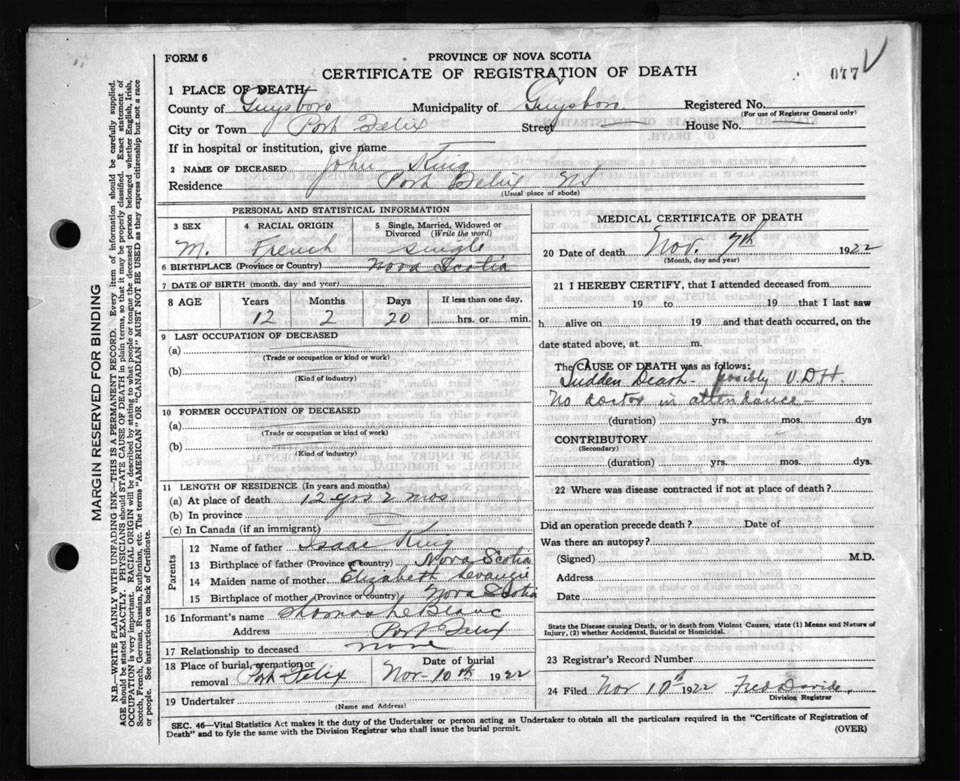 FORM 6
PROVINCE OF NOVA SCOTIA
CERTIFICATE OF REGISTRATION OF DEATH
077
1 PLACE OF DEATH
County of Guysboro Municipality of Guysboro Registered No.
(For use of Registrar General only)
City or Town Port Felix Street House No.
If in hospital or institution, give name
2 NAME OF DECEASED John King
Residence Port Felix NS
(Usual place of abode)
PERSONAL AND STATISTICAL INFORMATION
3 SEX 4 RACIAL ORIGIN 5 Single, Married, Widowed or Divorced (Write the word)
M. French single
6 BIRTHPLACE (Province or Country) Nova Scotia
7 DATE OF BIRTH (month, day and year)
8 AGE Years Months Days If less than one day,
12 2 20 hrs. or min.
9 LAST OCCUPATION OF DECEASED
(a)
(Trade or occupation or kind of work)
(b)
(Kind of industry)
10 FORMER OCCUPATION OF DECEASED
(a)
(Trade or occupation or kind of work)
(b)
(Kind of industry)
11 LENGTH OF RESIDENCE (In years and months)
(a) At place of death 12 yrs 2 mos
(b) In province
(c) In Canada (if an immigrant)
Parents
12 Name of father Isaac King
13 Birthplace of father (Province or country) Nova Scotia
14 Maiden name of mother Elizabeth
15 Birthplace of mother (Province or Country) Nova Scotia
16 Informant's name Thomas LeBlanc
Address Port Felix
17 Relationship to deceased none
18 Place of burial, cremation or removal Port Felix Date of burial Nov 10th 1922
19 Undertaker
(Name and Address)
MEDICAL CERTIFICATE OF DEATH
20 Date of death Nov. 7th 1922
(Month, day and year)
21 I HEREBY CERTIFY, that I attended deceased from
19 to 19 that I last saw
h alive on 19 and that death occurred, on the
date stated above, at m.
The CAUSE OF DEATH was as follows:
Sudden Death - possibly V.D.H.
No doctor in attendance -
(duration) yrs. mos. dys
CONTRIBUTORY
(Secondary)
(duration) yrs. mos. dys.
22 Where was disease contracted if not at place of death?
Did an operation precede death? Date of
Was there an autopsy?
(Signed) M.D.
Address
Date
State the Disease causing Death, or in death from Violent Causes, state (1) Means and Nature of
Injury, (2) whether Accidental, Suicidal or Homicidal.
23 Registrar's Record Number
24 Filed Nov 10th 1922 Fred
Division Registrar
SEC. 46—Vital Statistics Act makes it the duty of the Undertaker or person acting as Undertaker to obtain all the particulars required in the "Certificate of Registration of
Death" and to fyle the same with the Division Registrar who shall issue the burial permit.
(OVER)
MARGIN RESERVED FOR BINDING
N.B.—WRITE PLAINLY WITH UNFADING INK—THIS IS A PERMANENT RECORD. Every item of information should be carefully supplied.
AGE should be stated EXACTLY. PHYSICIANS should STATE CAUSE OF DEATH in plain terms, so that it may be properly classified. Exact statement of
OCCUPATION is very important. RACIAL ORIGIN will be described by stating to what people or tongue the deceased person belonged whether English, Irish,
Scotch, French, German, Russian, Ruthenian, etc. The terms "AMERICAN" or "CANADIAN" MUST NOT BE USED as they express citizenship but not a race
or people. See instructions on back of Certificate.